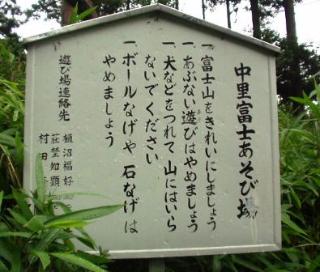 中里富士あそび場
一、富士山をきれいにしましょう
一、あぶない遊びはやめましょう
一、犬などをつれて山にはいら
ないでください
一、ボールなげや石なげは
やめましょう
遊び場連絡先
植沼福好
村田